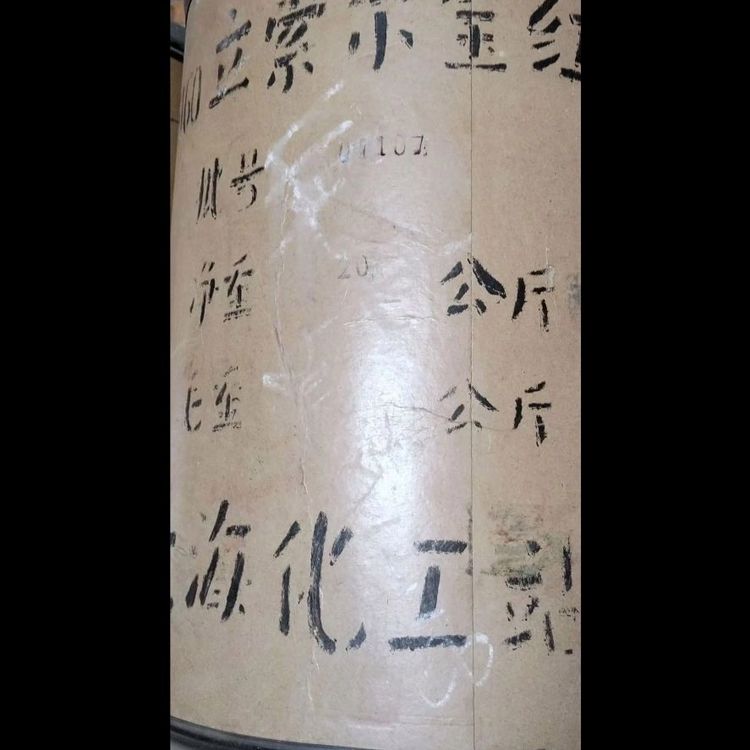 60立索尔宝红
批号 07107
净重 20 公斤
毛重 公斤
海化工站